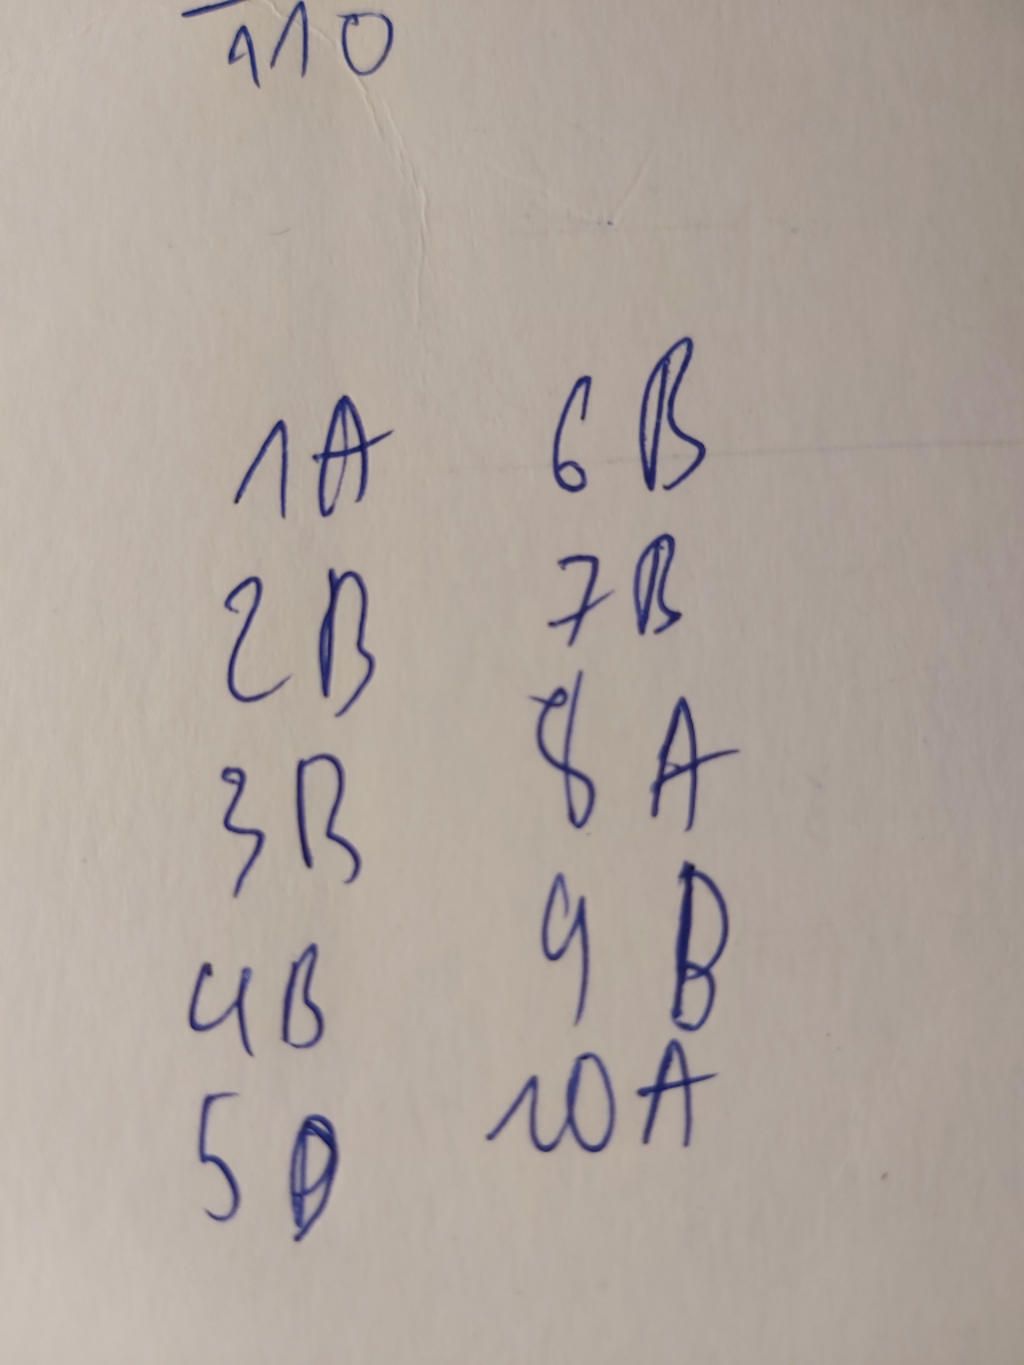 110
1A
2B
3B
4B
5
6B
7B
8 A
9 B
10A